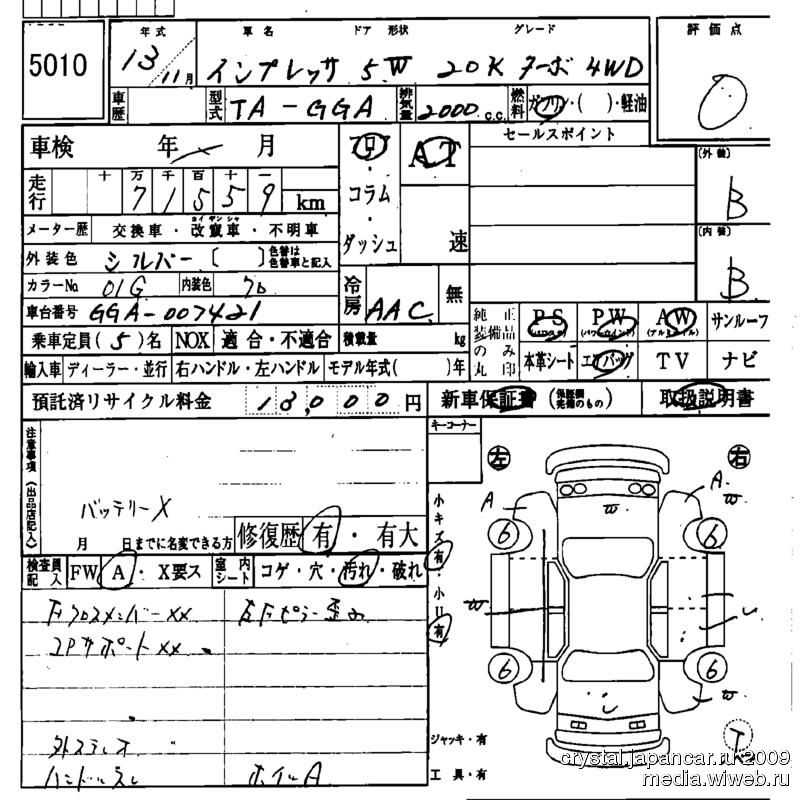 年式 車名 ドア 形状 グレード 評価点
5010 13 11月 インプレッサ 5W 20K ターボ 4WD 0
車歴 型式 TA-GGA 排気量 2000 c.c. 燃料 ガソリン・( )・軽油
車検 年 月 フロア・コラム・ダッシュ AT 速 セールスポイント
(外装) B
走行 十 万 千 百 十 一
7 1 5 5 9 km
(内装) B
メーター歴 交換車・改ザン車・不明車
外装色 シルバー [ ] 色替は色替車と記入
カラーNo 01G 内装色 クロ
冷房 AAC 無
車台番号 GGA-007421
乗車定員(5)名 NOX 適合・不適合 積載量 kg
純正装備品のみ丸印 PS PW AW サンルーフ
本革シート エアバッグ TV ナビ
輸入車 ディーラー・並行 右ハンドル・左ハンドル モデル年式( )年
預託済リサイクル料金 18,000円 新車保証書 取扱説明書
注意事項(出品店記入) キーコーナー
バッテリーX
月 日までに名変できる方 修復歴 有・有大
検査員記入 FW A・X要ス 室内シート コゲ・穴・汚れ・破れ
小キズ有・小凹有
FクロスメンバーXX 右Fピラー歪み
コアサポートXX
外ステレオ
ハンドルスレ ホイルA
ジャッキ・有
工具・有
左 右
A W A W
6 6
W
6 6
W
crystal.japancar.ru 2009
media.wiweb.ru